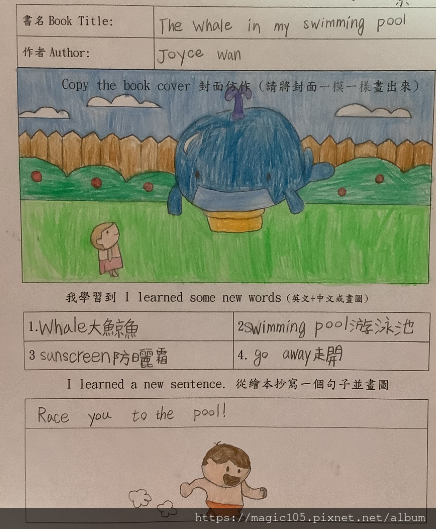 書名 Book Title: The whale in my swimming pool
作者 Author: Joyce wan
Copy the book cover 封面仿作 (請將封面一模一樣畫出來)
我學習到 I learned some new words (英文+中文或畫圖)
1. whale 大鯨魚 2 swimming pool 游泳池
3 sunscreen 防曬霜 4. go away 走開
I learned a new sentence. 從繪本抄寫一個句子並畫圖
Race you to the pool!
https://magic105.pixnet.net/album